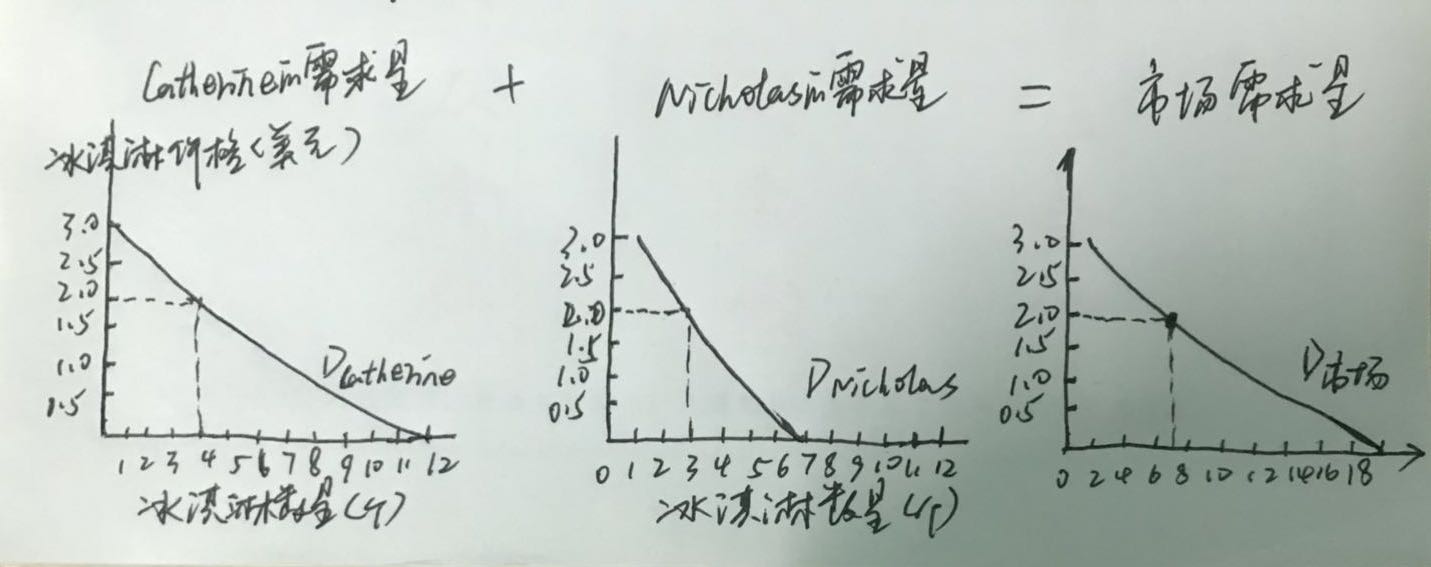 Catherine的需求量 + Nicholas的需求量 = 市场需求量
冰淇淋价格(美元)
3.0
2.5
2.0
1.5
1.0
1.5
DCatherine
1 2 3 4 5 6 7 8 9 10 11 12
冰淇淋数量(个)
3.0
2.5
2.0
1.5
1.0
0.5
DNicholas
0 1 2 3 4 5 6 7 8 9 10 11 12
冰淇淋数量(个)
3.0
2.5
2.0
1.5
1.0
0.5
D市场
0 2 4 6 8 10 12 14 16 18